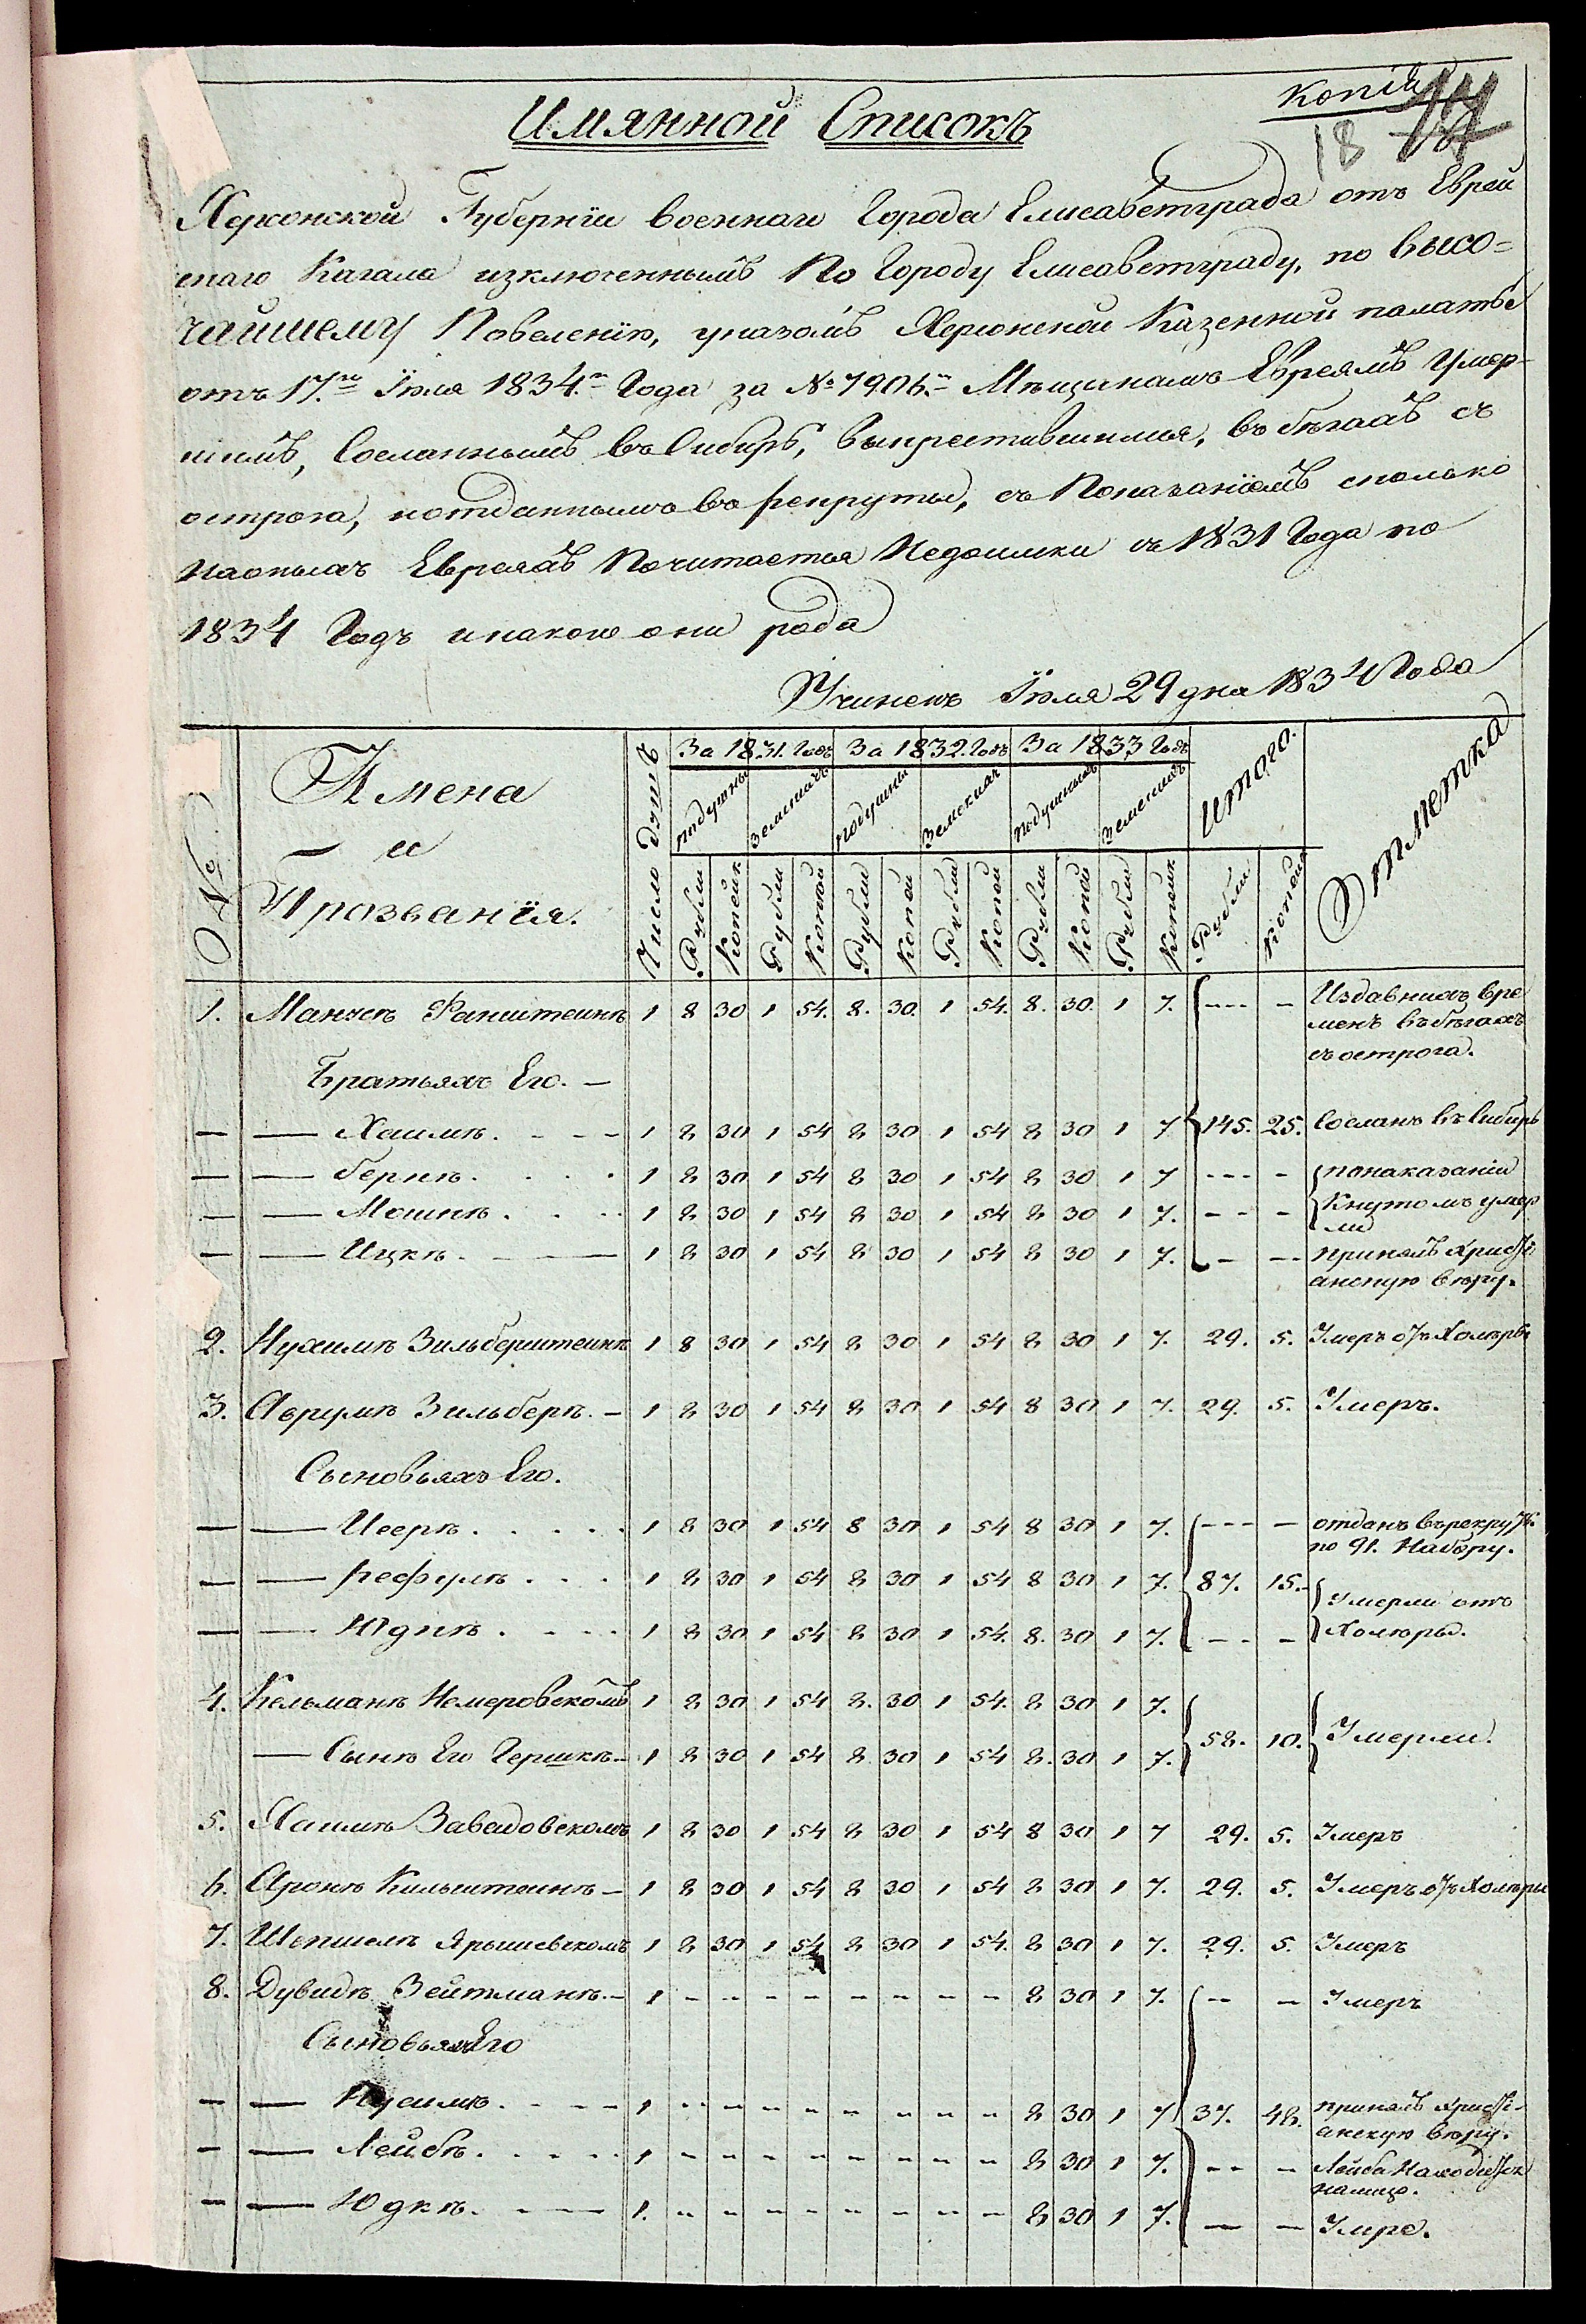 Копія
18 14
Имянной Списокъ
Херсонской Губерніи военнаго Города Елисаветграда отъ Еврей
скаго Кагала изключеннымъ по Городу Елисаветграду, по высо=
чайшему Повеленію, указомъ Херсонской Казенной палаты
отъ 17.го Іюля 1834.го Года за № 7906.м Мѣщанамъ Евреямъ Умер-
шимъ, Сосланнымъ въ Сибирь, выкрестившимся, въ бѣгахъ съ
острога, и отданнымъ въ рекруты, съ Показаніемъ сколько
на оныхъ Евреяхъ Почитается Недоимки съ 1831 Года по
1834 Годъ и какого они рода
Учиненъ Іюля 29 дня 1834 Года
№
Имена
и
Прозванія.
Число душъ
За 1831. Годъ За 1832. Годъ За 1833 Годъ
подушныхъ земскихъ подушны земскихъ подушныхъ земскихъ
Итого.
Отметка
Рубли Копеик Рубли Копей Рубли Копеи Рубли Копей Рубли Копей Рубли Копеик Рубли Копеик
1. Манусъ Факштеинъ 1 8 30 1 54. 8. 30. 1 54. 8. 30. 1 7. --- - Издавнихъ вре
менъ въ бѣгахъ
съ острога.
Братьяхъ Его. -
— — Хаимъ. 1 8 30 1 54 8 30 1 54 8 30 1 7 145. 25. Сосланъ въ Сибирь
— — беркъ. 1 8 30 1 54 8 30 1 54 8 30 1 7 --- - по наказаніи
— — Мошкъ. 1 8 30 1 54 8 30 1 54 8 30 1 7. --- - Кнутомъ умер
ли
— — Ицкъ. 1 8 30 1 54 8 30 1 54 8 30 1 7. - -- принялъ христі
анскую вѣру.
2. Нухимъ Зильберштеинъ 1 8 30 1 54 8 30 1 54 8 30 1 7. 29. 5. Умеръ отъ Холѣры
3. Аврумъ Зильберъ. - 1 8 30 1 54 8 30 1 54 8 30 1 7. 29. 5. Умеръ.
Сыновьяхъ Его.
— — Исеръ. 1 8 30 1 54 8 30 1 54 8 30 1 7. --- - отданъ въ рекруты
по 91. Набору.
— — рефулъ. 1 8 30 1 54 8 30 1 54 8 30 1 7. 87. 15. Умерли отъ
— — Юдкъ. 1 8 30 1 54 8 30 1 54. 8. 30 1 7. -- - Холѣры.
4. Кельманъ Немеровскомъ 1 8 30 1 54 8. 30 1 54. 8 30 1 7.
— Сынъ Его Гершкъ. - 1 8 30 1 54 8 30 1 54 8. 30 1 7. 58. 10. Умерли.
5. Хаимъ Завадовскомъ 1 8 30 1 54 8 30 1 54 8 30 1 7 29. 5. Умеръ
6. Аронъ Кильштеинъ - 1 8 30 1 54 8 30 1 54 8 30 1 7. 29. 5. Умеръ отъ Холѣры
7. Шепшелъ Ярышевскомъ 1 8 30 1 54 8 30 1 54. 8 30 1 7. 29. 5. Умеръ
8. Дувидъ Зейтманъ. - 1 - - - - - - - - 8 30 1 7. -- - Умеръ
Сыновьяхъ Его
— — Нусимъ. 1 - - - - - - - - 8 30 1 7 37. 48. принялъ христі-
анскую вѣру.
— — Лейбъ. 1 - - - - - - - - 8 30 1 7. -- - Лейба Находится
налицо.
— — Юдкъ. 1. - - - - - - - - 8 30 1 7. — — Умре.